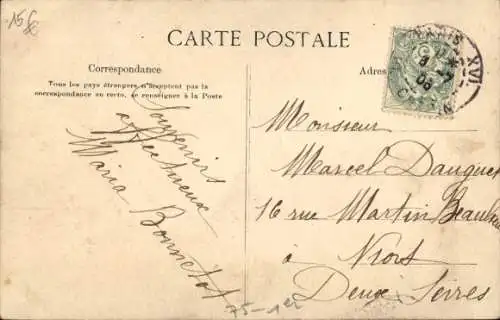 CARTE POSTALE
Correspondance
Tous les pays étrangers n'acceptent pas la
correspondance au recto, se renseigner à la Poste
Souvenirs
affectueux
Maria
Bonnetot
Adres
PARIS
XVI
Monsieur
Marcel Dauguet
16 rue Martin Beaulieu
à Niort
Deux Sèvres
75-